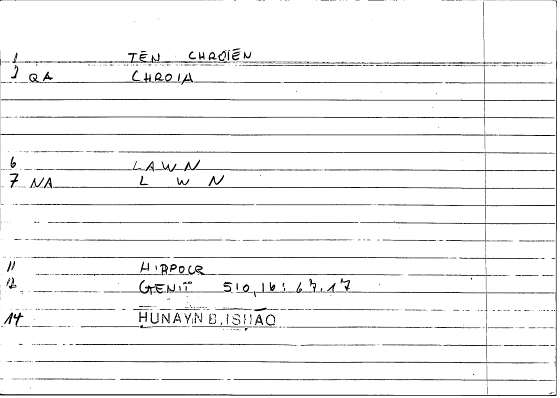 1 TĒN CHROIĒN
2 QA CHROIA
6 LAWN
7 NA L W N
11 HIPPOCR
12 GENIT 510,16: 67.17
14 ḤUNAYN B. ISḤĀQ